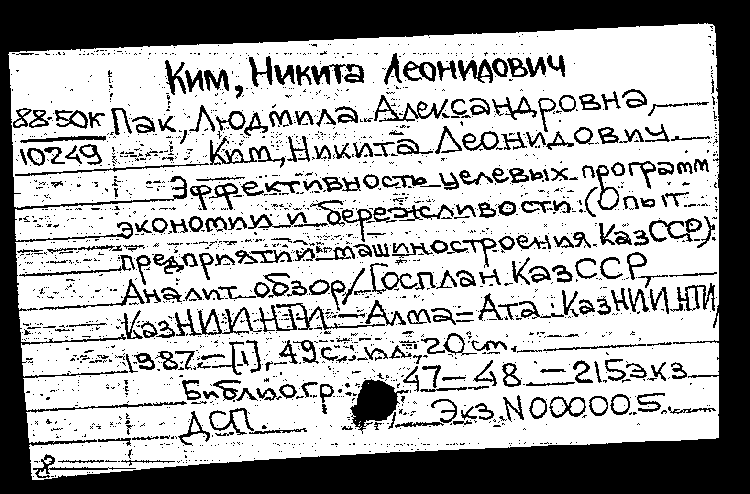 Ким, Никита Леонидович
88-50К
10249
Пак, Людмила Александровна,
Ким, Никита Леонидович.
Эффективность целевых программ
экономии и бережливости: (Опыт
предприятий машиностроения КазССР):
Аналит. обзор/Госплан КазССР,
КазНИИНТИ. – Алма-Ата: КазНИИНТИ,
1987. – [1], 49 с.: ил.; 20 см.
Библиогр.: 47–48. – 215 экз
ДСП. Экз. N000005.